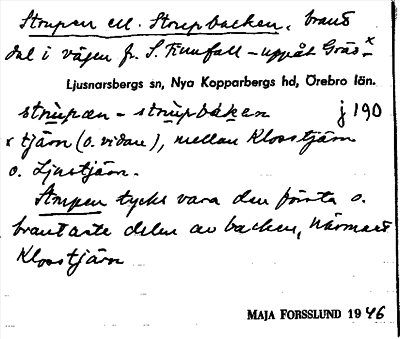 Strupen ell. Strupbacken, brant
del i vägen fr. S. Finnfall – uppåt Gräs-x
Ljusnarsbergs sn, Nya Kopparbergs hd, Örebro län.
strùpæn – strùpbàken j 190
x tjärn (o. vidare), mellan Klosstjärn
o. Ljustjärn.
Strupen tycks vara den första o.
brantaste delen av backen, närmast
Klosstjärn
MAJA FORSSLUND 1946